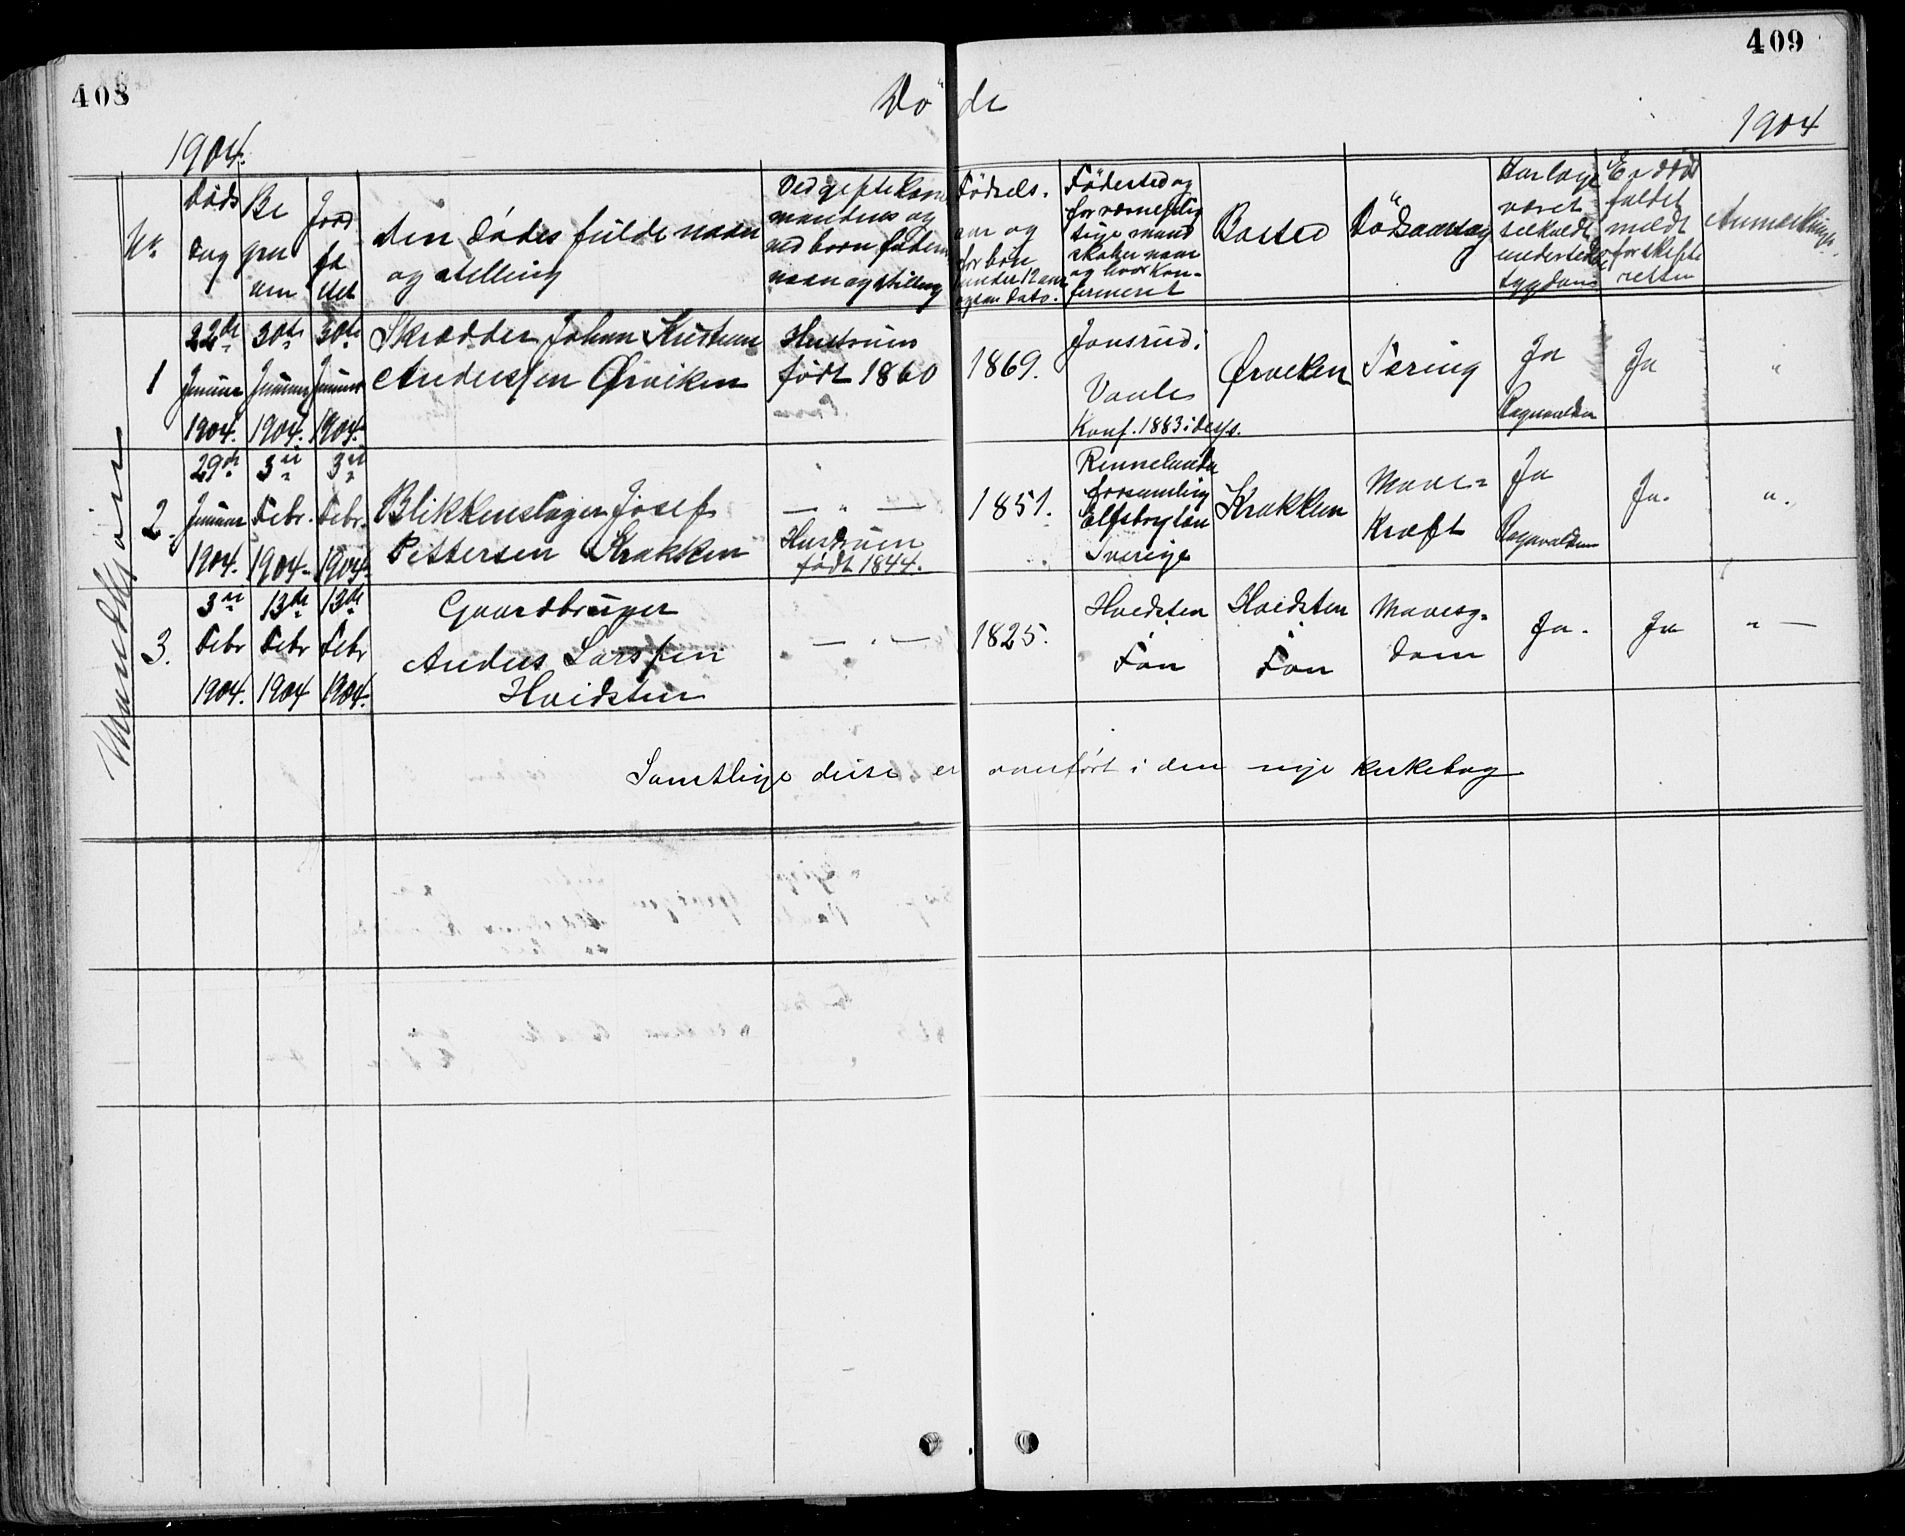 408
409
Dø de
1904.
1904
Mandkjøn
No
Døds dag
Be gra ven
Jord fæ stet
Den dødes fulde navn og stilling
Ved gifte kone mandens og ved børn faderens navn og stilling
Fødsels. aar og for børn under 12 aar ogsaa dato.
Fødested og for værnepligtige mandskaber naar og hvor konfirmeret
Bosted
Dødsaarsag
Har læge været tilkaldt under sidste sygdom
Er dødsfaldet meldt for skifteretten
Anmærkninger
1
22de Januar 1904.
30te Januar 1904.
30te Januar 1904.
Skrædder Johan Kristian
Anderssen Ørviken
Hustruen
født 1860
1869.
Jonsrud.
Vaale
Konf. 1883 i dess.
Ørviken
Tæring
Ja
Ragnvaldsen
Ja
"
2.
29de Januar 1904.
3die Febr. 1904.
3die Febr. 1904.
Blikkenslager Josef
Pettersen Krakken
— " —
Hustruen
født 1844.
1851.
forsamling
Elfsborg län
Sverige
Krakken
Mave-
Kræft
Ja
Ragnvaldsen
Ja.
".
3.
3die Febr 1904.
13de Febr 1904
13de Febr 1904.
Gaardbruger
Anders Larssen
Hvidsten
— " —
1825.
Hvidsten
Fon
Hvidsten
Fon
Mavesyg-
dom
Ja.
Ja
" —
Samtlige disse er overført i den nye kirkebog